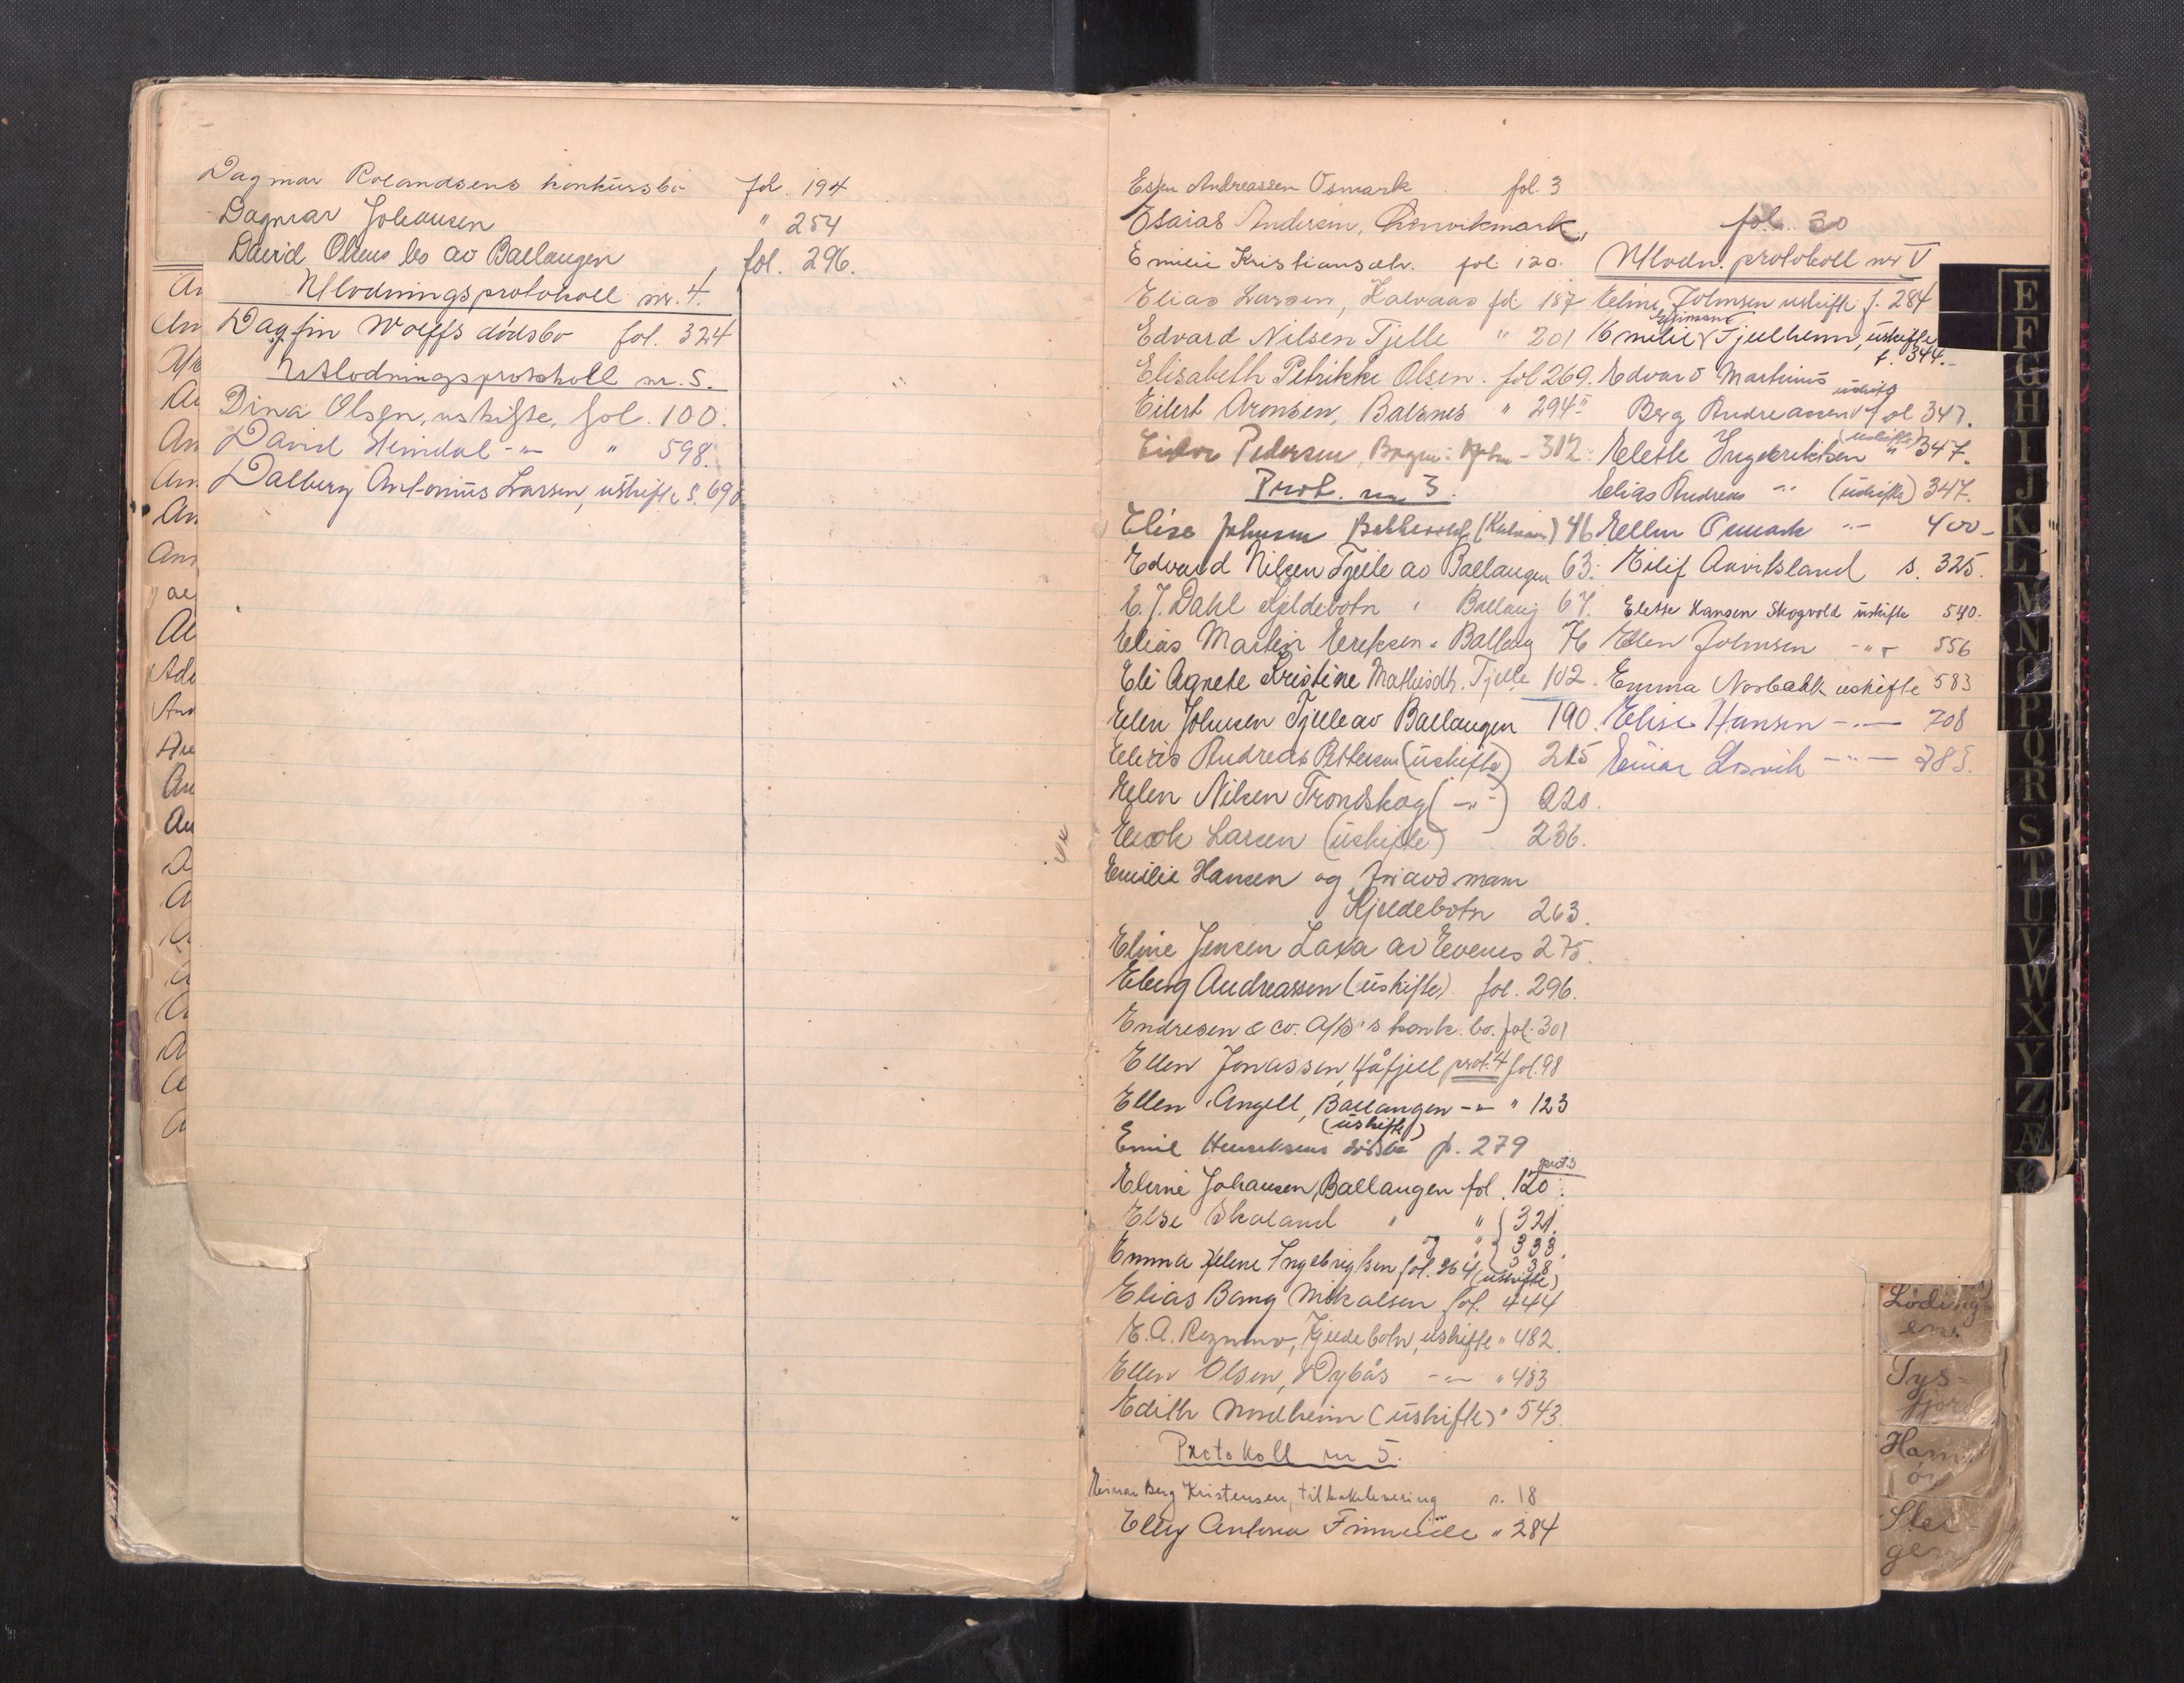 Dagmar Rolandsens konkursbo fol. 194
Dagmar Johansen " 254
David Olsens bo av Ballangen, fol. 296.
Utlodningsprotokoll nr. 4.
Dagfin Wolffs dödsbo fol. 324
Utlodningsprotokoll nr. 5.
Dina Olsen, uskifte, fol. 100.
David Heimdal -"- " 598.
Dalberg Antonius Larsen, uskifte s. 690
Andreassen Osmark fol. 3
Esaias Andersen, fol. 30
Emilie Kristiansdtr. fol. 120.
Elias Larsen, fol 187
Edvard Nilsen Tjelle " 201
Elisabeth Petrikke Olsen. fol 269.
Eilert Aronsen, Balsnes " 294
Pedersen, Bogen - 312
Prot. nr 3.
Elise Johnsen 46
Edvard Nilsen Tjelle av Ballangen 63.
E. J. Dahl Kjeldebotn " Ballang 67.
Elias Martin Eriksen " Ballang 76
Eli Agnete Kristine Mathisdtr. Tjelle 102.
Elen Johnsen Tjelle av Ballangen 190.
Andreas Pettersen (uskifte) 215
Elen Nilsen Trondskog (-"-) 220.
Larsen (uskifte) 236.
Emilie Hansen og mann
Kjeldebotn 263.
Eline Jensen Laxa av Evenes 275.
Andreassen (uskifte) fol. 296.
Endresen & co. A/S's konk. bo. fol. 301
Ellen Jonassen, Håfjell prot. 4 fol. 98
Ellen Angell, Ballangen -"- " 123
(uskifte)
Emil Henriksens dödsbo f. 279
Johansen, Ballangen fol. 120. prot. 5
Else Skaland " " 321.
og " 333.
338
Emma Helene Ingebrigtsen fol. 364 (uskifte)
Elias Bang Mikalsen fol. 444
E. A. Kjeldebotn, uskifte " 482.
Ellen Olsen, Dybås -"- " 483
Edith Nordheim (uskifte) " 543.
Protokoll nr 5.
Einar Berg Kristensen, tilbakelevering s. 18
Antona " 284
Utlodn. protokoll nr V
Eline Johnsen uskifte f. 284
Emilie Tjeldhem, uskifte
f. 344.-
Edvard Martinus uskifte
Berg Andreassen fol 347.
Elette Ingebriktsen (uskifte) " 347.
Elias Andreas -"- (uskifte) 347.
Ellen Osmark -"- 400-
Eilif Anviksland s. 325.
Elette Hansen Skogvold uskifte 540.
Ellen Johnsen -"- 556
Emma Norbakk uskifte 583
Elise Hansen -"- 708
Einar -"- 785.
E
F
G
H
I
J
K
L
M
N
O
P
Q
R
S
T
U
V
W
X
Y
Z
Æ
Ø
Löding-
en.
Tys-
fjord
Ham-
ör
Stei-
gen